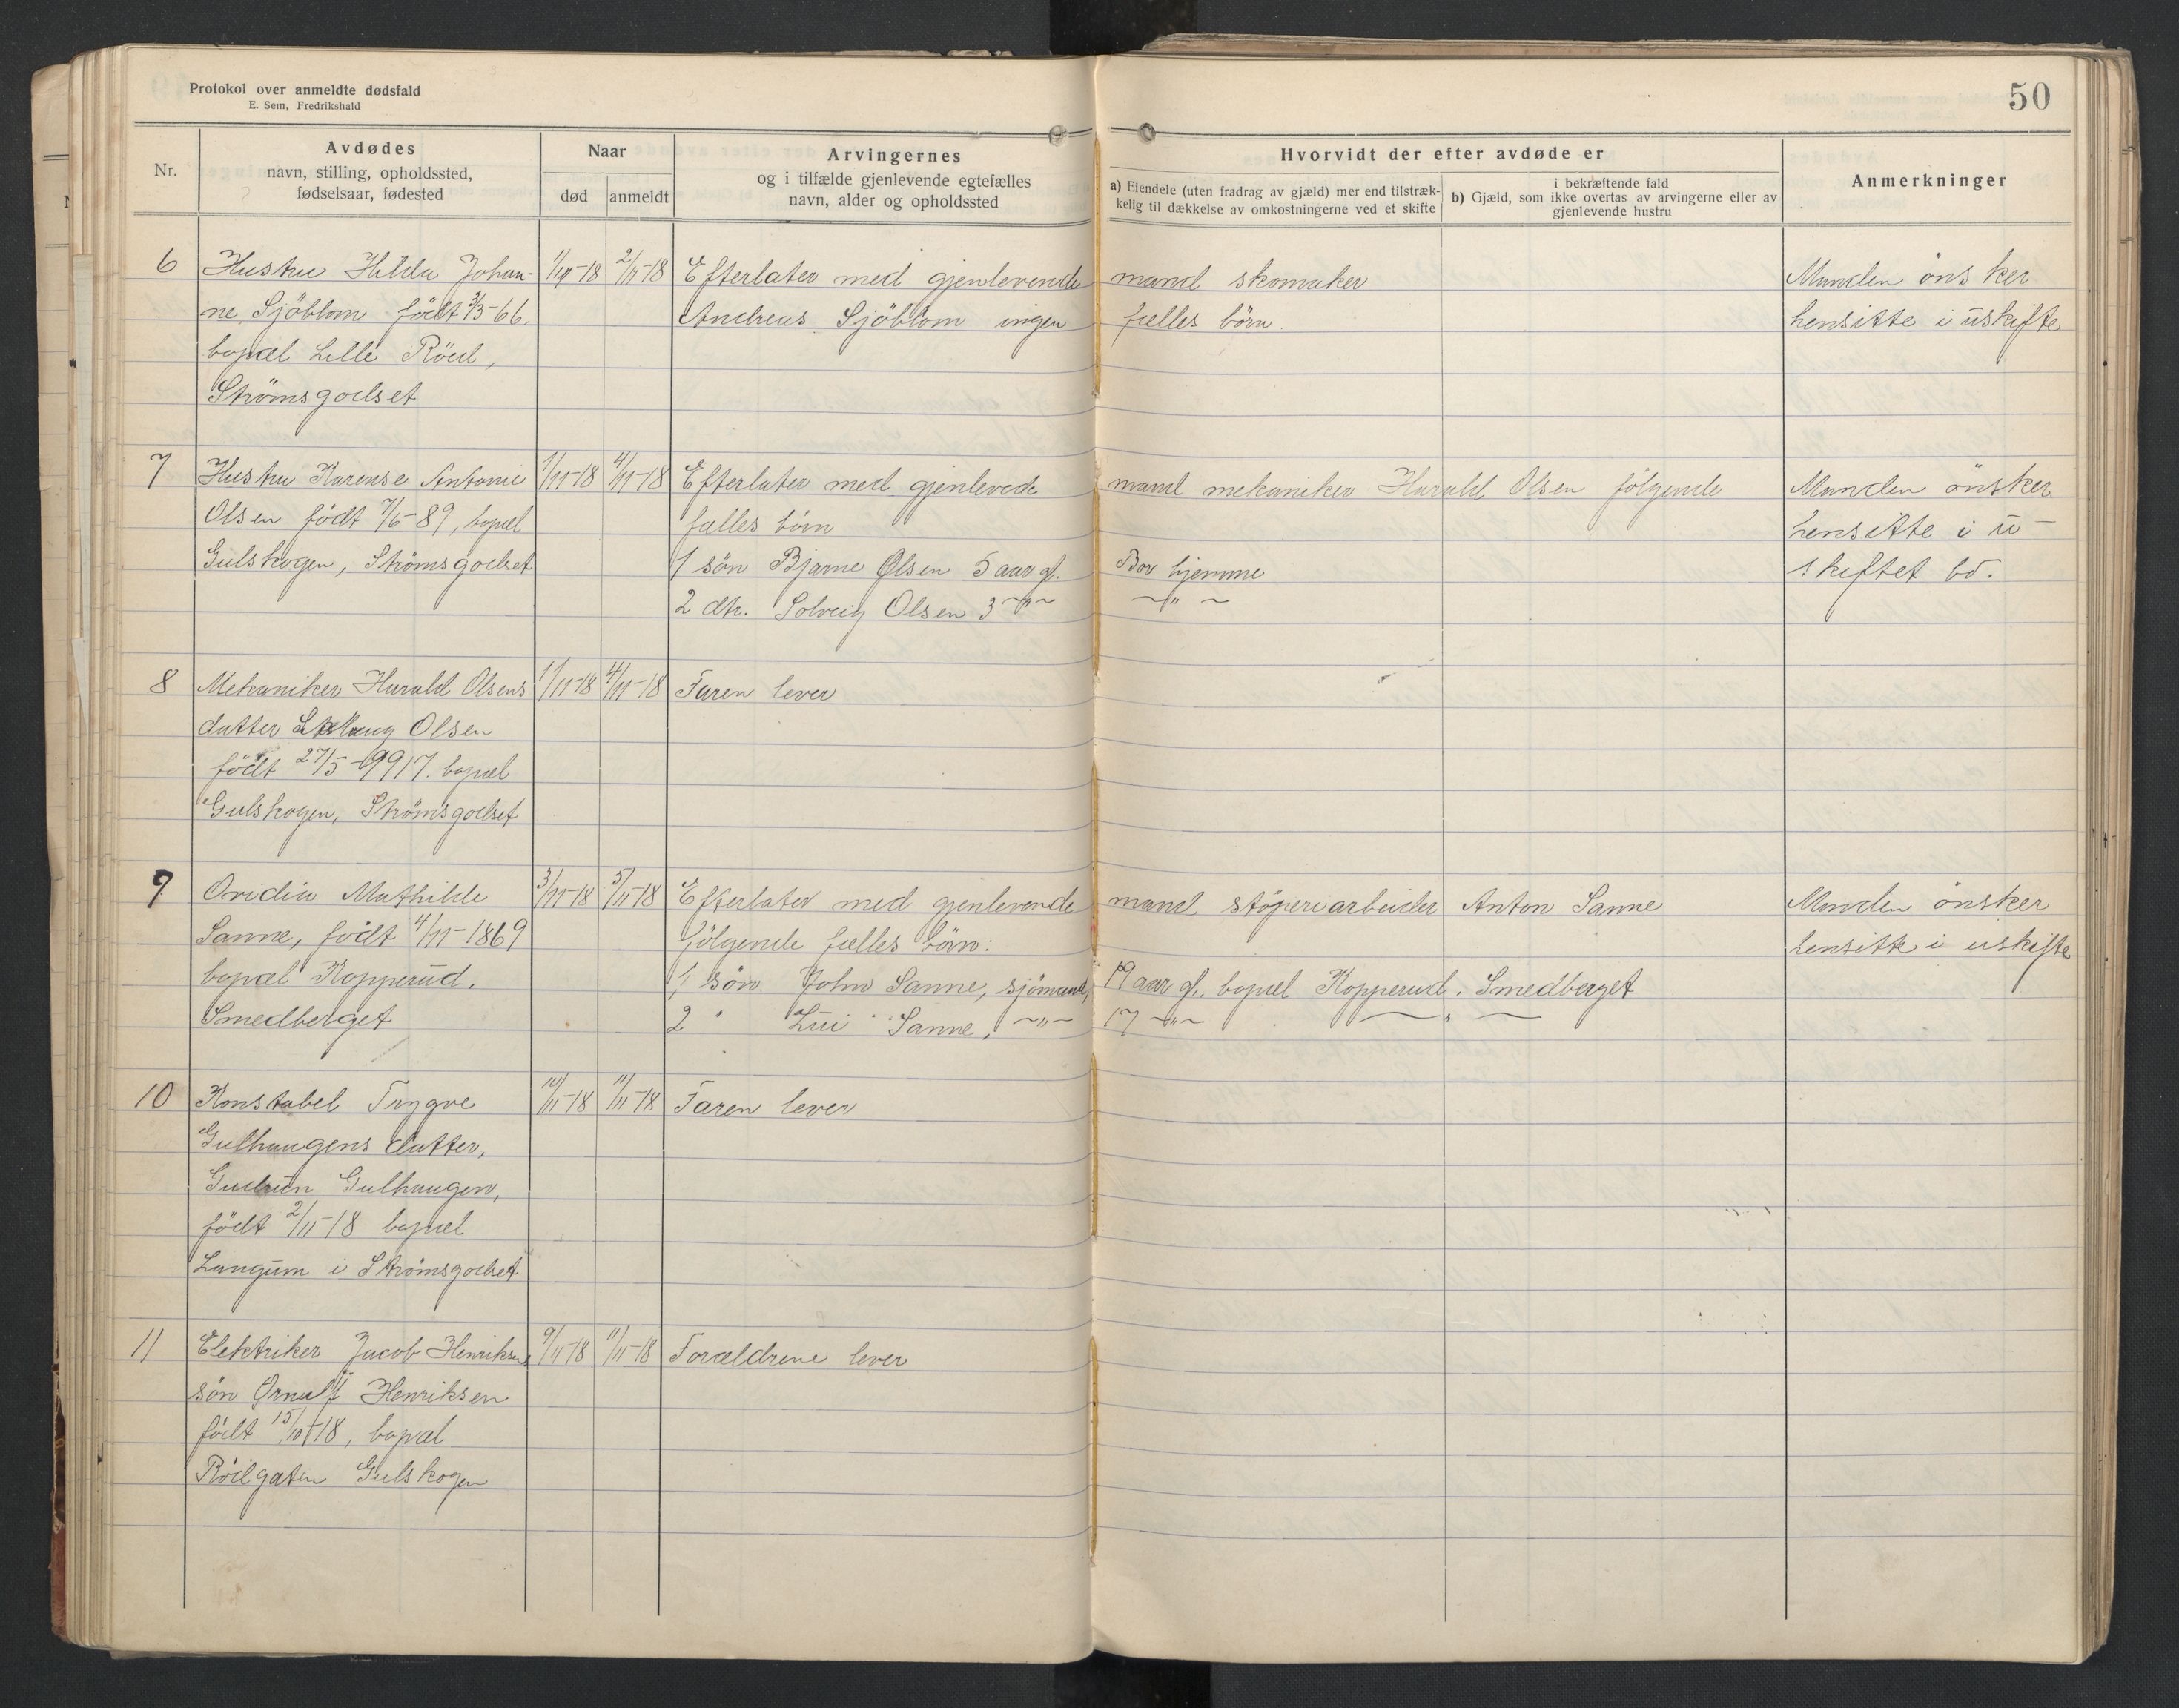 Protokol over anmeldte dødsfald
E. Sem, Fredrikshald
50
Nr.
Avdødes
navn, stilling, opholdssted,
fødselsaar, fødested
Naar
død
anmeldt
Arvingernes
og i tilfælde gjenlevende egtefælles
navn, alder og opholdssted
Hvorvidt der efter avdøde er
a) Eiendele (uten fradrag av gjæld) mer end tilstræk-
kelig til dækkelse av omkostningerne ved et skifte
i bekræftende fald
b) Gjæld, som ikke overtas av arvingerne eller av
gjenlevende hustru
Anmerkninger
6 Hustru Hilda Johan- 2/11-18 Efterlater med gjenlevende mand skomaker Manden önsker
ne Sjöblom födt 3/3-66. Andreas Sjöblom ingen fælles börn. hensitte i uskifte
bopæl Lille Röed,
Strömsgodset
7 Hustru Karense Antonie 1/11-18 4/11-18 Efterlater med gjenlevede mand mekaniker Harald Olsen fölgende Manden önsker
Olsen födt 7/6-89, bopæl fælles börn hensitte i u-
Gulskogen, Strömsgodset 1 sön Bjarne Olsen 5 aar gl. Bor hjemme skiftet bo.
2 dtr. Solveig Olsen 3 -"- -"-
8 Mekaniker Harald Olsens 1/11-18 4/11-18 Faren lever
datter Olsen
födt 27/5- bopæl
Gulskogen, Strömsgodset
9 Ovidia Mathilde 3/11-18 5/11-18 Efterlater med gjenlevende mand støperiarbeider Anton Sanne Manden önsker
Sanne, födt 4/11-1869 fölgende fælles börn: hensitte i uskifte
bopæl Kopperud. 1, sön John Sanne, sjömand, 19 aar gl., bopæl Kopperud. Smedberget
Smedberget 2 " Sanne, -"- 17 -"- - " -
10 Konstabel Trygve 10/11-18 11/11-18 Faren lever
Gulhaugens datter,
Gudrun Gulhaugen,
födt 2/11-18 bopæl
Langum i Strömsgodset
11 Elektriker Jacob Henriksens 9/11-18 11/11-18 Forældrene lever
sön Ørnulf Henriksen
födt 15/10-18, bopæl
Rödgaten Gulskogen